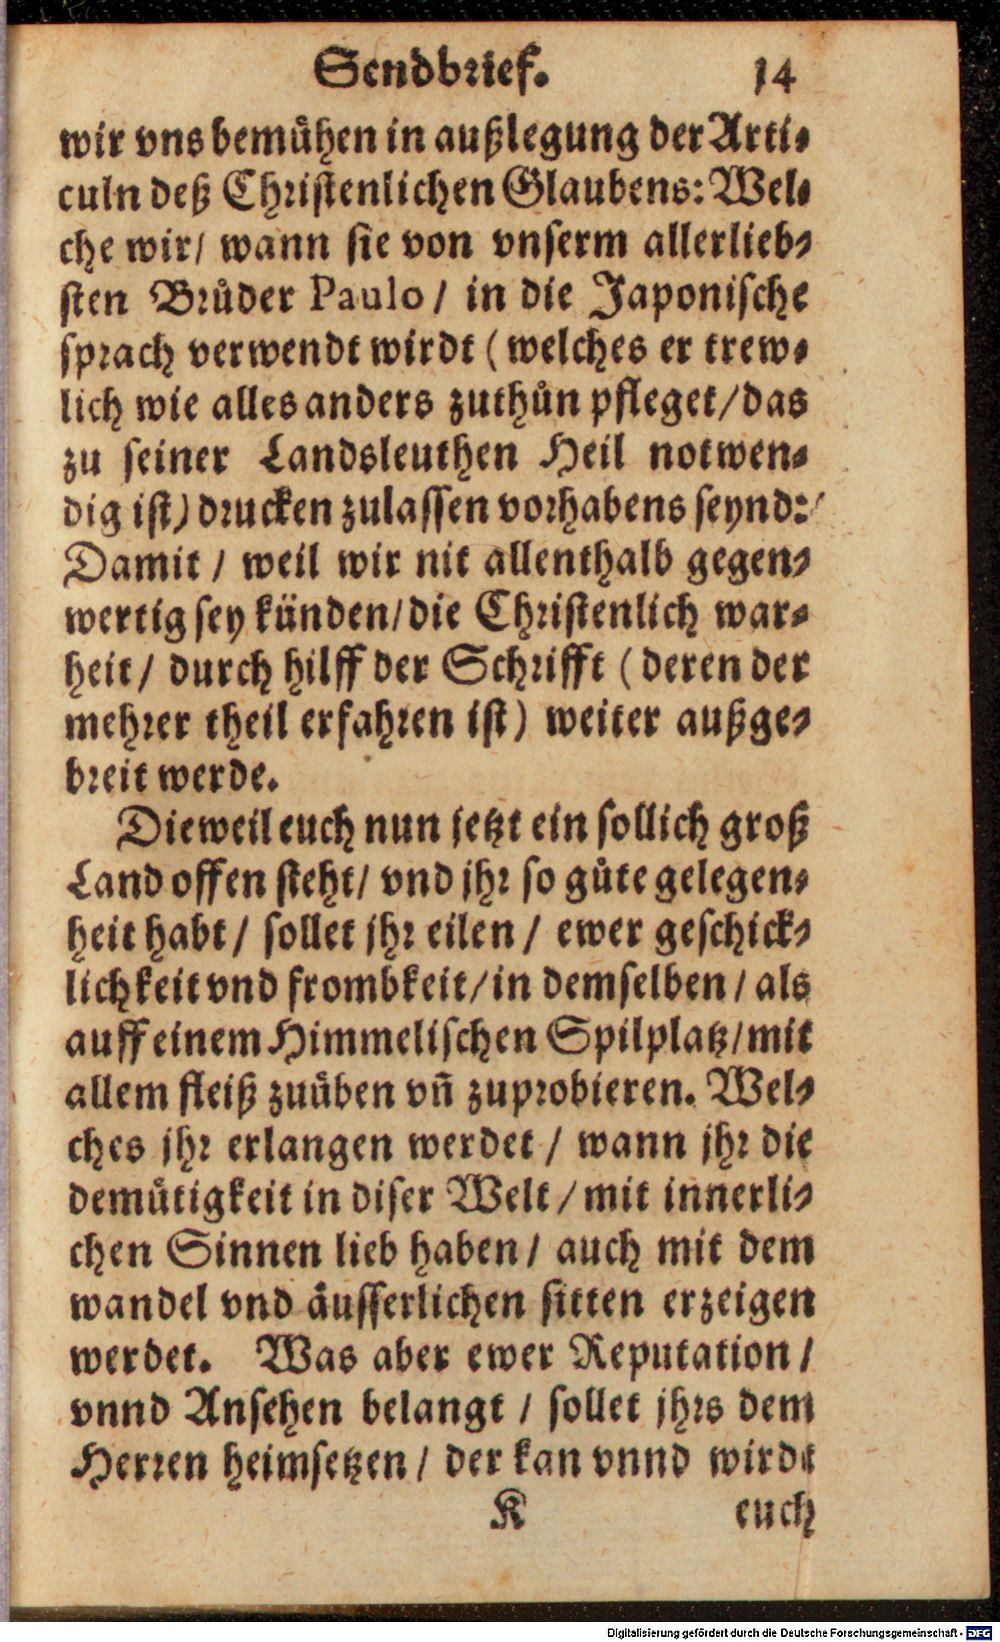 Sendbrief. 14
wir vns bemůhen in außlegung der Arti⸗
culn deß Christenlichen Glaubens: Wel⸗
che wir/ wann sie von vnserm allerlieb⸗
sten Brůder Paulo/ in die Japonische
sprach verwendt wirdt (welches er trew⸗
lich wie alles anders zuthůn pfleget/das
zu seiner Landsleuthen Heil notwen⸗
dig ist) drucken zulassen vorhabens seynd:
Damit / weil wir nit allenthalb gegen⸗
wertig sey künden/die Christenlich war⸗
heit/ durch hilff der Schrifft (deren der
mehrer theil erfahren ist) weiter außge⸗
breit werde.
Dieweil euch nun jetzt ein sollich groß
Land offen steht/ vnd jhr so gůte gelegen⸗
heit habt/ sollet jhr eilen/ ewer geschick⸗
lichkeit vnd frombkeit/in demselben/ als
auff einem Himmelischen Spilplatz/mit
allem fleiß zuüben vñ zuprobieren. Wel⸗
ches jhr erlangen werdet / wann jhr die
demůtigkeit in diser Welt/mit innerli⸗
chen Sinnen lieb haben/ auch mit dem
wandel vnd äusserlichen sitten erzeigen
werdet. Was aber ewer Reputation/
vnnd Ansehen belangt / sollet jhrs dem
Herren heimsetzen/ der kan vnnd wirdt
K euch
Digitalisierung gefördert durch die Deutsche Forschungsgemeinschaft - DFG